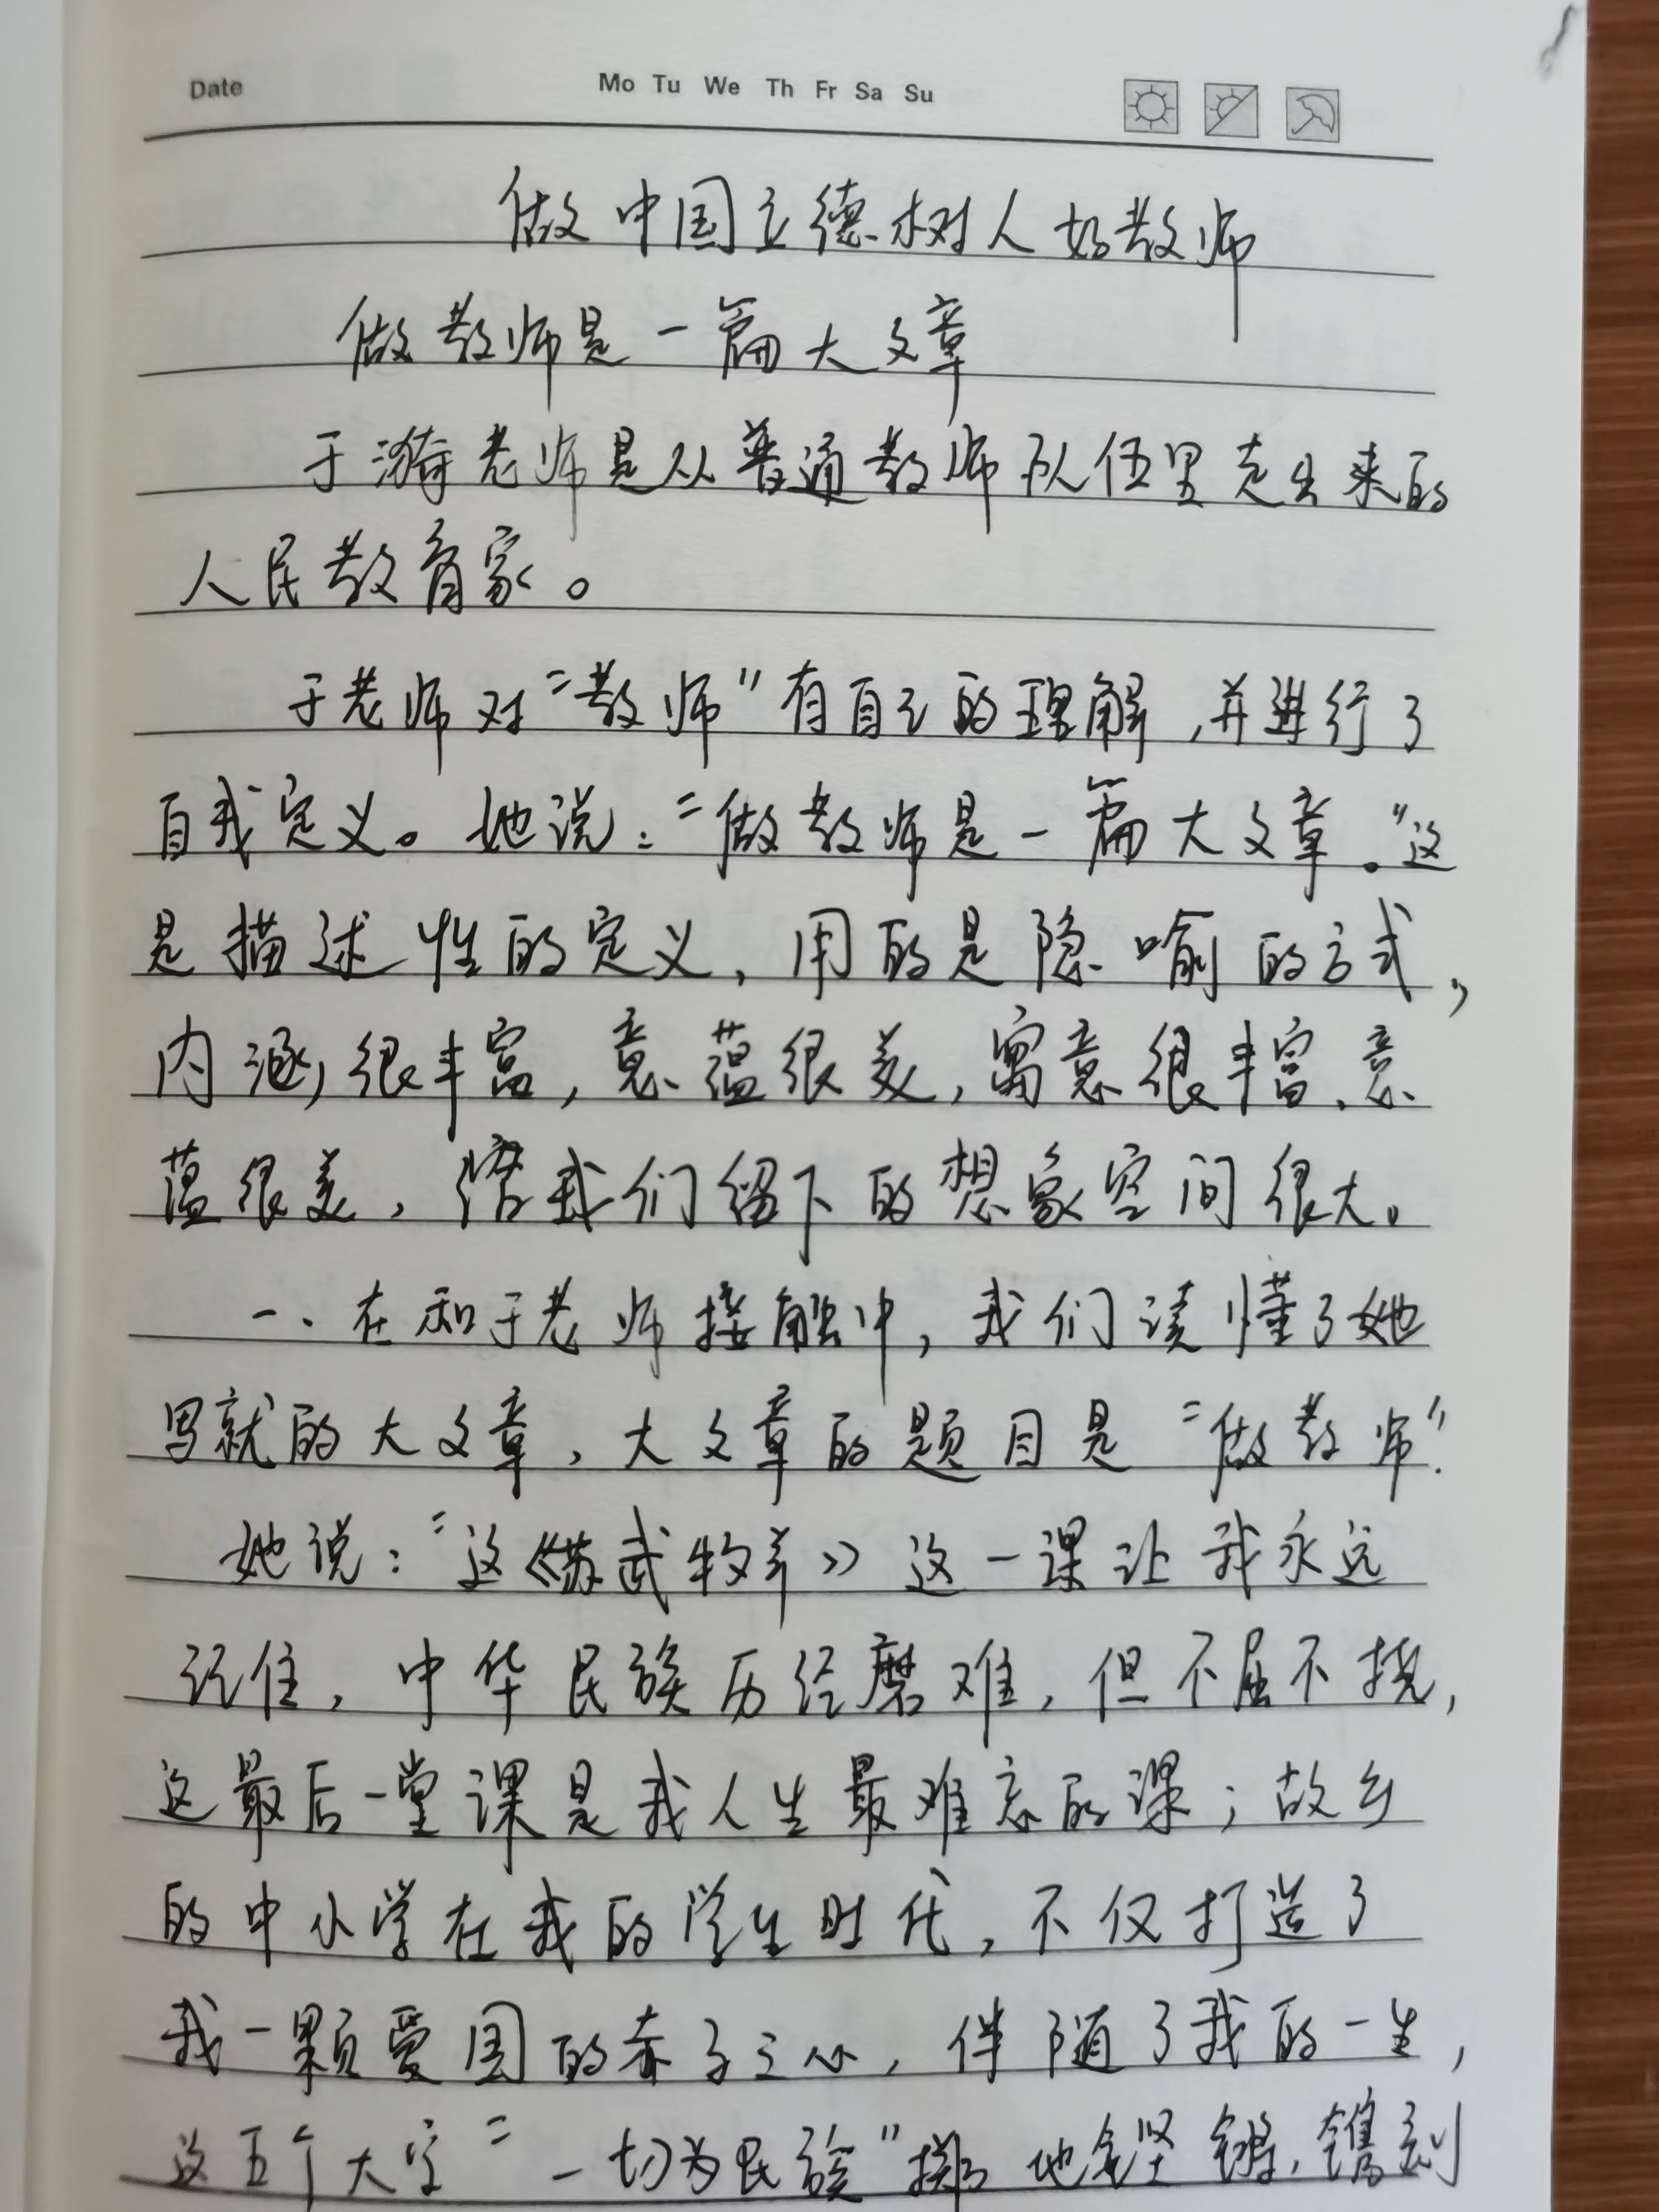 Date Mo Tu We Th Fr Sa Su
做中国立德树人好教师
做教师是一篇大文章
于漪老师是从普通教师队伍里走出来的
人民教育家。
于老师对“教师”有自己的理解,并进行了
自我定义。她说:“做教师是一篇大文章。”这
是描述性的定义,用的是隐喻的方式,
内涵很丰富,意蕴很美,寓意很丰富、意
蕴很美,给我们留下的想象空间很大。
一、在和于老师接触中,我们读懂了她
写就的大文章,大文章的题目是“做教师”.
她说:“这《苏武牧羊》这一课让我永远
记住,中华民族历经磨难,但不屈不挠,
这最后一堂课是我人生最难忘的课;故乡
的中小学在我的学生时代,不仅打造了
我一颗爱国的赤子之心,伴随了我的一生,
这五个大字“一切为民族”掷地金坚锵,镌刻